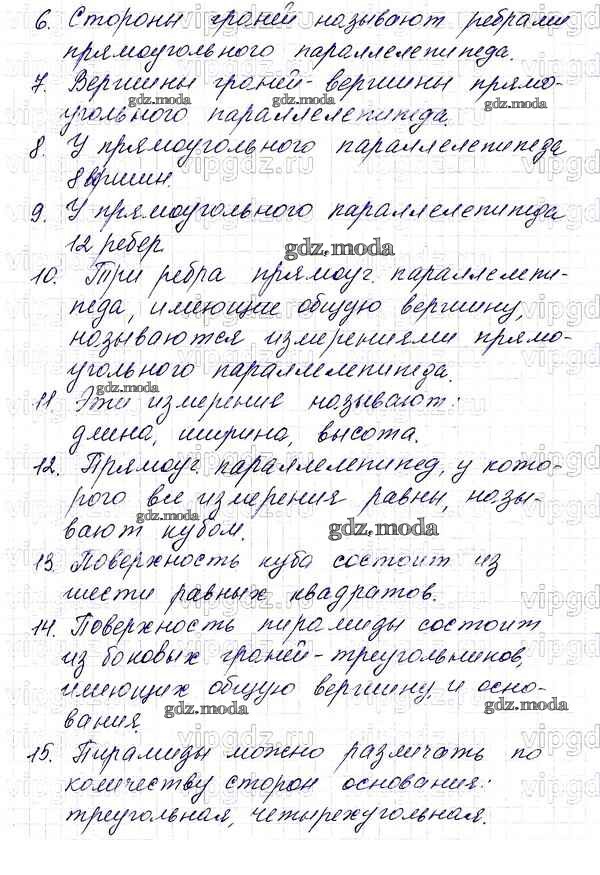 6. Стороны граней называют ребрами
прямоугольного параллелепипеда.
7. Вершины граней - вершины прямо-
угольного параллелепипеда.
8. У прямоугольного параллелепипеда
8 вершин.
9. У прямоугольного параллелепипеда
12 ребер
10. Три ребра прямоуг. параллелепи-
педа, имеющие общую вершину,
называются измерениями прямо-
угольного параллелепипеда.
11. Эти измерения называют:
длина, ширина, высота.
12. Прямоуг. параллелепипед, у кото-
рого все измерения равны, назы-
вают кубом.
13. Поверхность куба состоит из
шести равных квадратов.
14. Поверхность пирамиды состоит
из боковых граней - треугольников,
имеющих общую вершину, и осно-
вания.
15. Пирамиды можно различать по
количеству сторон основания:
треугольная, четырехугольная.
gdz.moda
gdz.moda
gdz.moda
gdz.moda
gdz.moda
gdz.moda
gdz.moda
gdz.moda
gdz.moda
vipgdz.ru